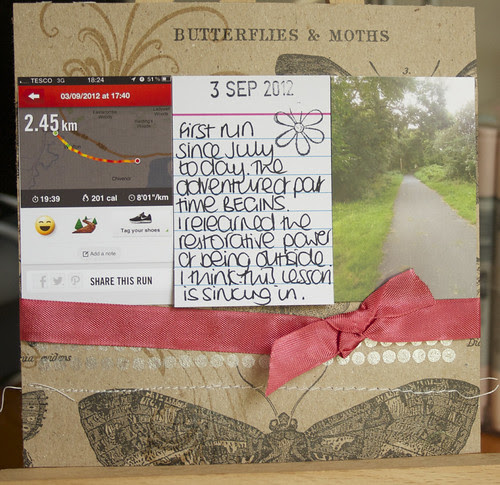 BUTTERFLIES & MOTHS
3.
TESCO 3G 18:24 51%
03/09/2012 at 17:40
2.45 km
19:39 201 cal 8'01"/km
Tag your shoes
Add a note
SHARE THIS RUN
3 SEP 2012
first run
since July
today. The
adventure of part
time BEGINS.
I relearned the
restorative power
of being outside
I think this lesson
is sinking in.